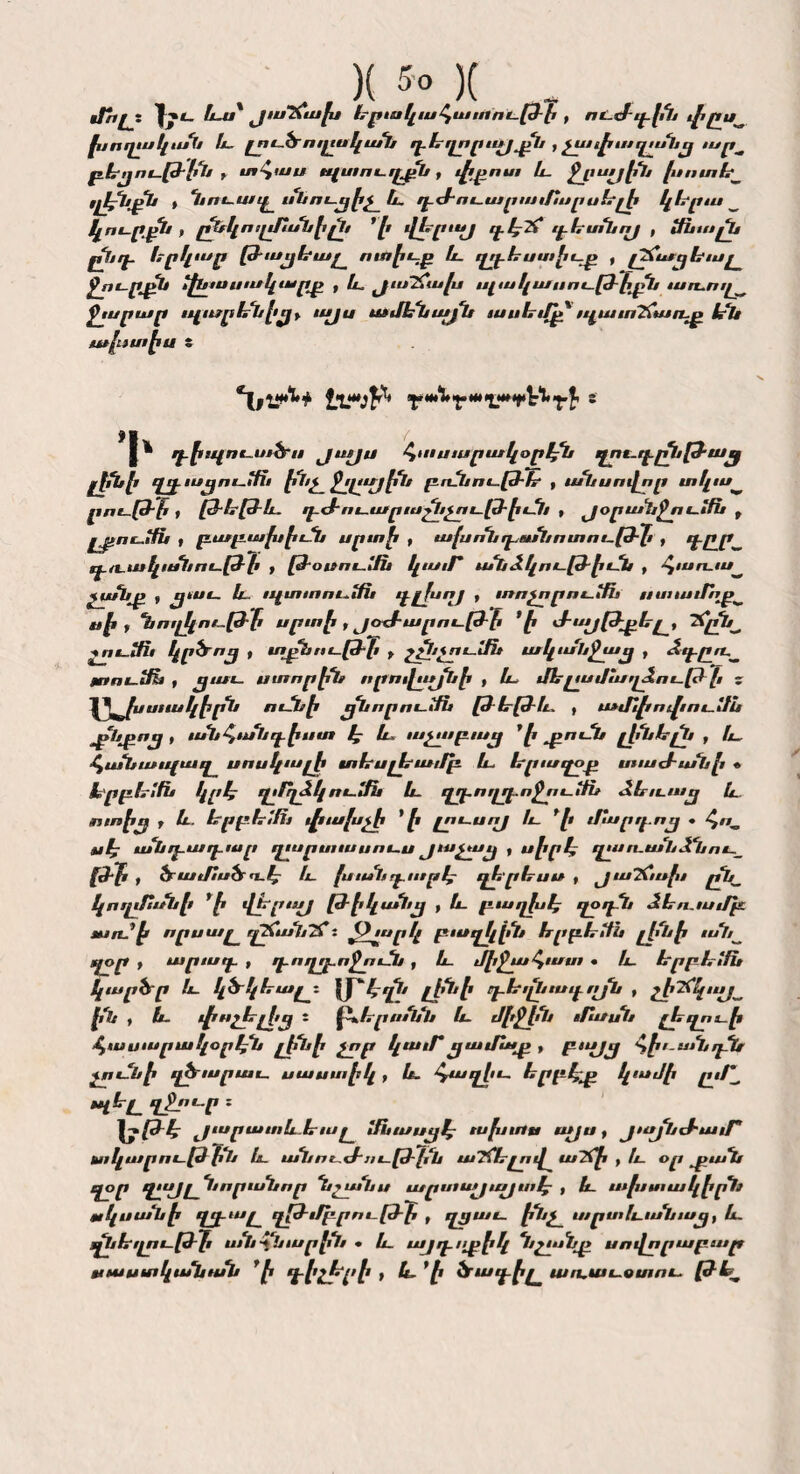 )( 50 )(
մոլ։ Եւ ևս՝ յաճախ երակահատութի, ուժգին փըս֊
խողական և լուծողական դեղորայքն, չափազանց ար֊
բեցութին, տհաս պտուղքն, վիքոտ և ջրային խոտե֊
ղէնքն, նուազ սնուցիչ և դժուարամարսելի կերա֊
կուրքն, ընկողմանիլն ՚ի վերայ գէճ գետնոյ, մնալն
ընդ երկար թացեալ ոտիւք և զգեստիւք, լճացեալ
ջուրքն մխտակարք, և յաճախ պակասութիքն առող֊
ջարար պարենից, այս ամենայն ասեմք՝ պատճառք են
ախտիս։
՚Ի դիպուածս յայս հասարակօրէն զուգընթաց
լինի զգացումն ինչ ջղային բռնութե, անսովոր տկա֊
րութի, թեթև դժուարաշնչութիւն, յօրանջումն,
լքումն, բաբախիւն սրտի, ախոնդանոտութի, գըր֊
գռականութի, թօտումն կամ անձկութիւն, հառա֊
չանք, ցաւ և պտտումն գլխոյ, տոչորումն ստամոք֊
սի, նուղկութի սրտի, յօժարութի ՚ի ժայթքել, ճըն֊
շումն կրծոց, տքնութի, շշնչումն ականջաց, ձգըռ֊
տումն, ցաւ ստորին որովայնի, և մելամաղձութի։
Ախտակիրն ունի ցնորումն թեթև, ամփոփումն
քնքոց, անհանգիստ է և աչաբաց ՚ի քուն լինելն, և
հանապազ սոսկալի տեսլեամբ և երազօք տաժանի.
երբեմն կրէ զմղձկումն և զդողդոջումն ձեռաց և
ոտից, և երբեմն փախչի ՚ի լուսոյ և ՚ի մարդոց. հո֊
սէ անդադար զարտասուս յաչաց, սիրէ զառանձնու֊
թի, ծամածռէ և խանգարէ զերեսս, յաճախ ըն֊
կողմանի ՚ի վերայ թիկանց, և բաղխէ զօդն ձեռամբ
առ՚ի որսալ զճանճ։ Զարկ բազկին երբեմն լինի ան֊
զօր, արագ, դողդոջուն, և միջահատ. և երբեմն
կարծր և կծկեալ։ Մէզն լինի դեղնագոյն, չիճկայ֊
ին, և փոշելից։ Բերանն և միջին մասն լեզուի
հասարակօրէն լինի չոր կամ ցամաք, բայց հիւանդն
չունի զծարաւ սաստիկ, և հազիւ երբէք կամի ըմ֊
պել զջուր։
Եթէ յարատևեալ մնասցէ ախտս այս, յայնժամ
տկարութին և անուժութին աճելով աճի, և օր քան
զօր զայլ նորանոր նշանս արտայայտէ, և ախտակիրն
սկսանի զգալ զթմբրութի, զցաւ ինչ արտևանաց, և
զնեղութի անհնարին. և այդպիսի նշանք սովորաբար
սաստկանան ՚ի գիշերի, և ՚ի ծագիլ առաւօտու թե֊